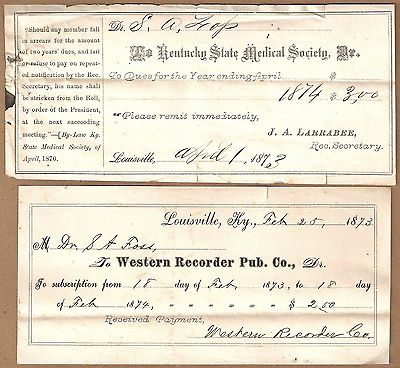 "Should any member fall
in arrears for the amount
of two years' dues, and fail
or refuse to pay on repeat-
ed notification by the Rec.
Secretary, his name shall
be stricken from the Roll,
by order of the President,
at the next succeeding
meeting."—[By-Law Ky.
State Medical Society, of
April, 1870.
Dr. S. A. Foss
To Kentucky State Medical Society, Dr.
To Dues for the Year ending April
$
1874 $3.00
"Please remit immediately,
J. A. LARRABEE,
Rec. Secretary.
Louisville, April 1, 1873
Louisville, Ky., Feb 25, 1873
M Dr. S A Foss,
To Western Recorder Pub. Co., Dr.
To subscription from 18 day of Feb 1873, to 18 day
of Feb 1874, " " " " " $ 2.50
Received Payment,
Western Recorder Co.